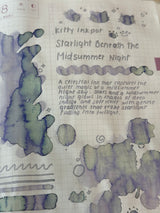 8
Kitty Inkpot
Starlight Beneath The
Midsummer Night
A celestial ink that captures the
quiet magic of a midsummer
night sky. Stars and a
night glows in shades of deep
indigo and soft violet with a
gradients that trace starlight
fading into twilight.